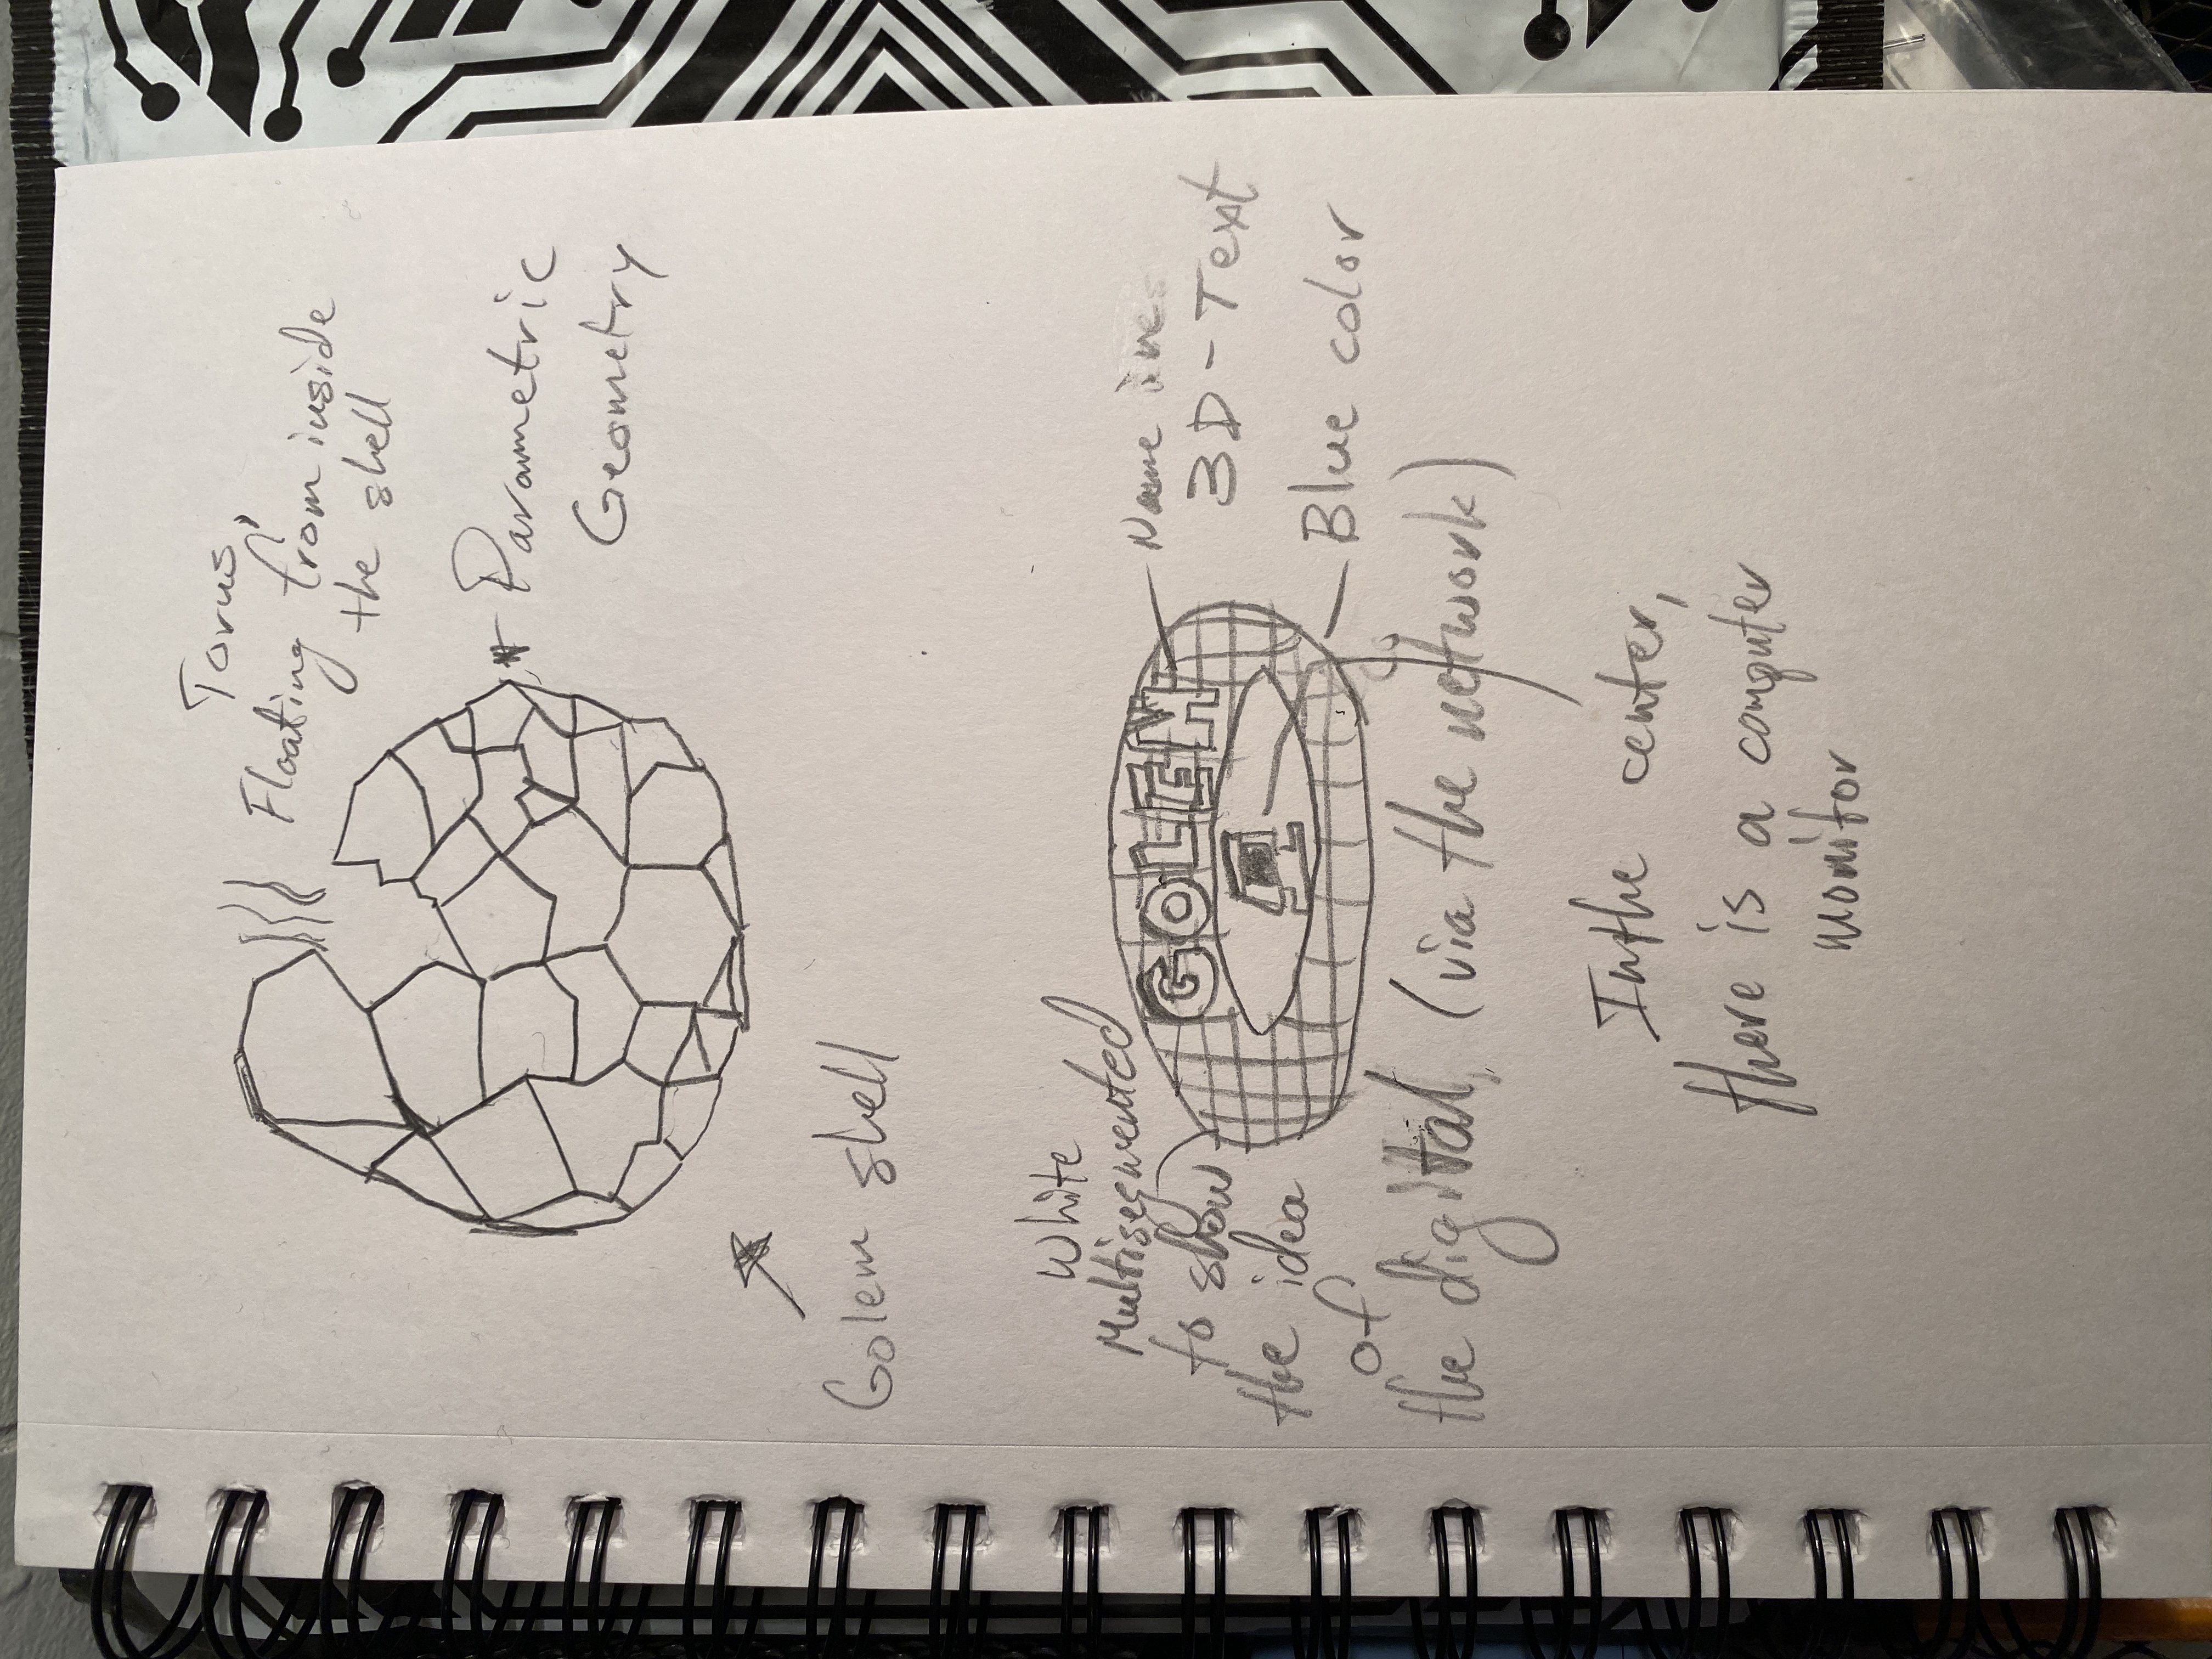 Torus,
Floating from inside
the shell
Parametric
Geometry
Golem shell
White
Multisegmented
to show
the idea
of
the digital, (via the network)
GOLEM
Name
3D-Text
Blue color
In the center,
there is a computer
monitor